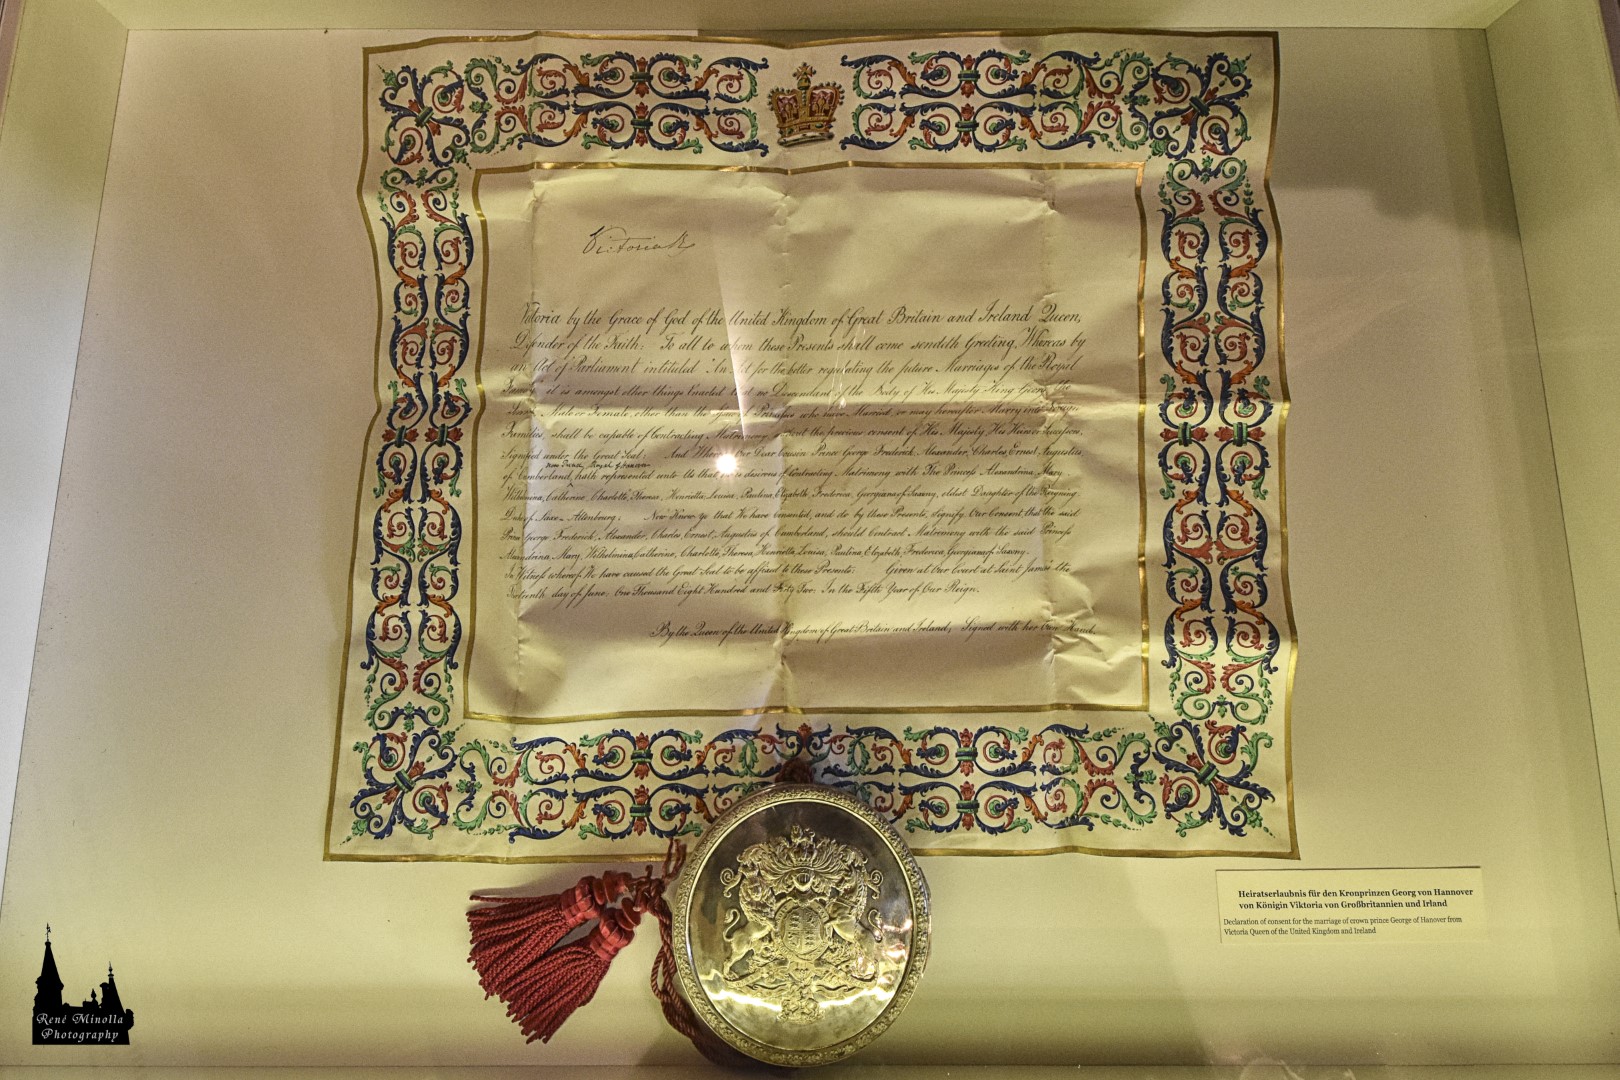 Victoria R
Victoria by the Grace of God of the United Kingdom of Great Britain and Ireland Queen,
Defender of the Faith: To all to whom these Presents shall come sendeth Greeting. Whereas by
an Act of Parliament intituled An Act for the better regulating the future Marriages of the Royal
Family, it is amongst other things Enacted that no Descendant of the Body of His Majesty King George the
Male or Female, other than the of Princesses who have Married, or may hereafter Marry into Foreign
Families, shall be capable of Contracting Matrimony the previous consent of His Majesty His Heirs or Successors,
Signified under the Great Seal: And Our Dear Cousin Prince George Frederick, Alexander, Charles, Ernest, Augustus,
now Prince Royal of Hanover
of Cumberland, hath represented unto Us that desirous of Contracting Matrimony with The Princess Alexandrina, Mary,
Wilhelmina, Catherine, Charlotte, Theresa, Henrietta, Louisa, Paulina, Elizabeth, Frederica, Georgiana of Saxony, eldest Daughter of the Reigning
Duke of Saxe-Altenbourg: Now Know ye that We have consented, and do by these Presents, signify Our Consent that the said
George Frederick, Alexander, Charles, Ernest, Augustus of Cumberland, should Contract Matrimony with the said Princess
Alexandrina, Mary, Wilhelmina, Catherine, Charlotte, Theresa, Henrietta, Louisa, Paulina, Elizabeth, Frederica, Georgiana of Saxony.
In Witness whereof We have caused the Great Seal to be affixed to these Presents: Given at Our Court at Saint James's this
day of June, One Thousand Eight Hundred and Two: In the Fifth Year of Our Reign.
By the Queen of the United Kingdom of Great Britain and Ireland, Signed with her Own Hand.
Heiratserlaubnis für den Kronprinzen Georg von Hannover
von Königin Viktoria von Großbritannien und Irland
Declaration of consent for the marriage of crown prince George of Hanover from
Victoria Queen of the United Kingdom and Ireland
René Minolla
Photography